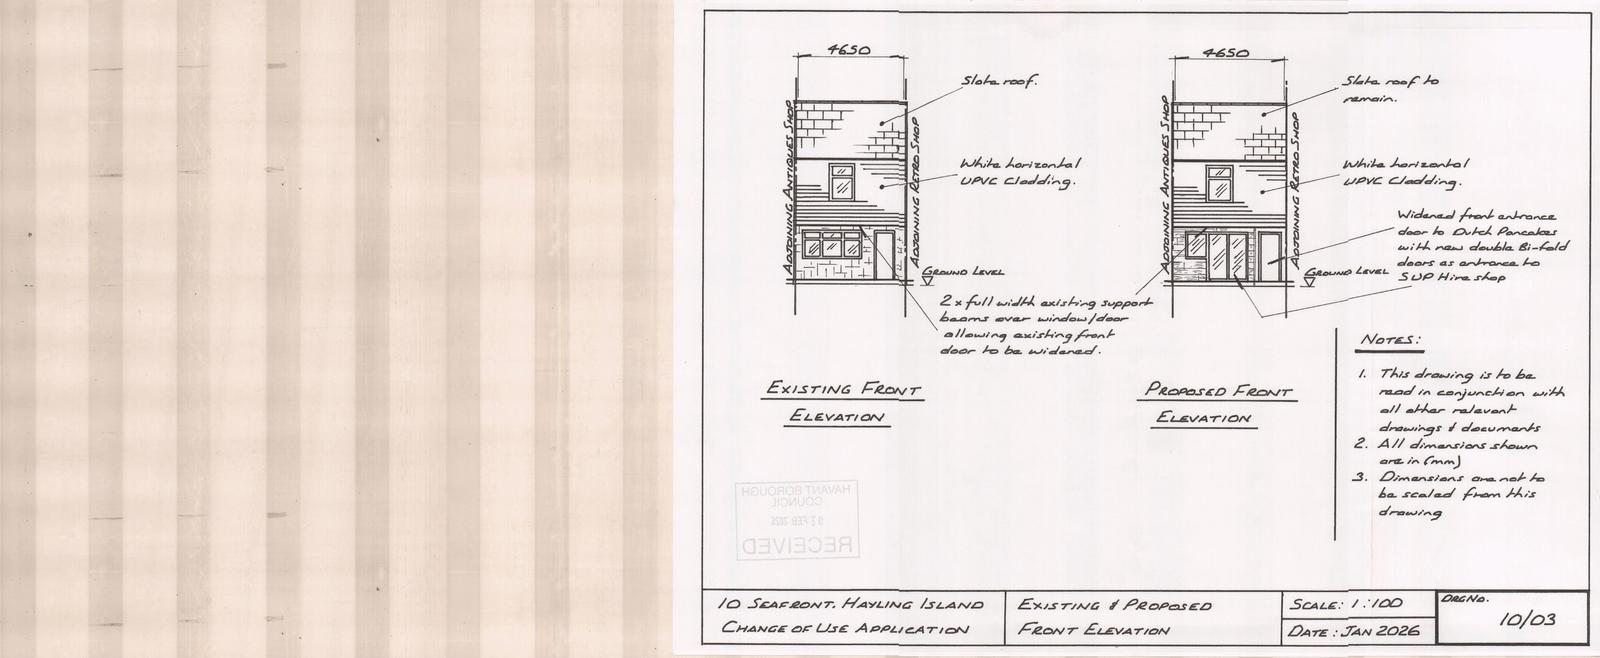 4650
Slate roof.
White horizontal
UPVC Cladding.
ADJOINING ANTIQUES SHOP
ADJOINING RETRO SHOP
GROUND LEVEL
2 x full width existing support
beams over window/door
allowing existing front
door to be widened.
EXISTING FRONT
ELEVATION
4650
Slate roof to
remain.
White horizontal
UPVC Cladding.
ADJOINING ANTIQUES SHOP
ADJOINING RETRO SHOP
Widened front entrance
door to Dutch Pancakes
with new double Bi-fold
doors as entrance to
SUP Hire shop
GROUND LEVEL
PROPOSED FRONT
ELEVATION
NOTES:
1. This drawing is to be
read in conjunction with
all other relevant
drawings & documents
2. All dimensions shown
are in (mm)
3. Dimensions are not to
be scaled from this
drawing
HAVANT BOROUGH
COUNCIL
FEB 2026
RECEIVED
10 SEAFRONT. HAYLING ISLAND
CHANGE OF USE APPLICATION
EXISTING & PROPOSED
FRONT ELEVATION
SCALE: 1:100
DATE: JAN 2026
DRG No.
10/03